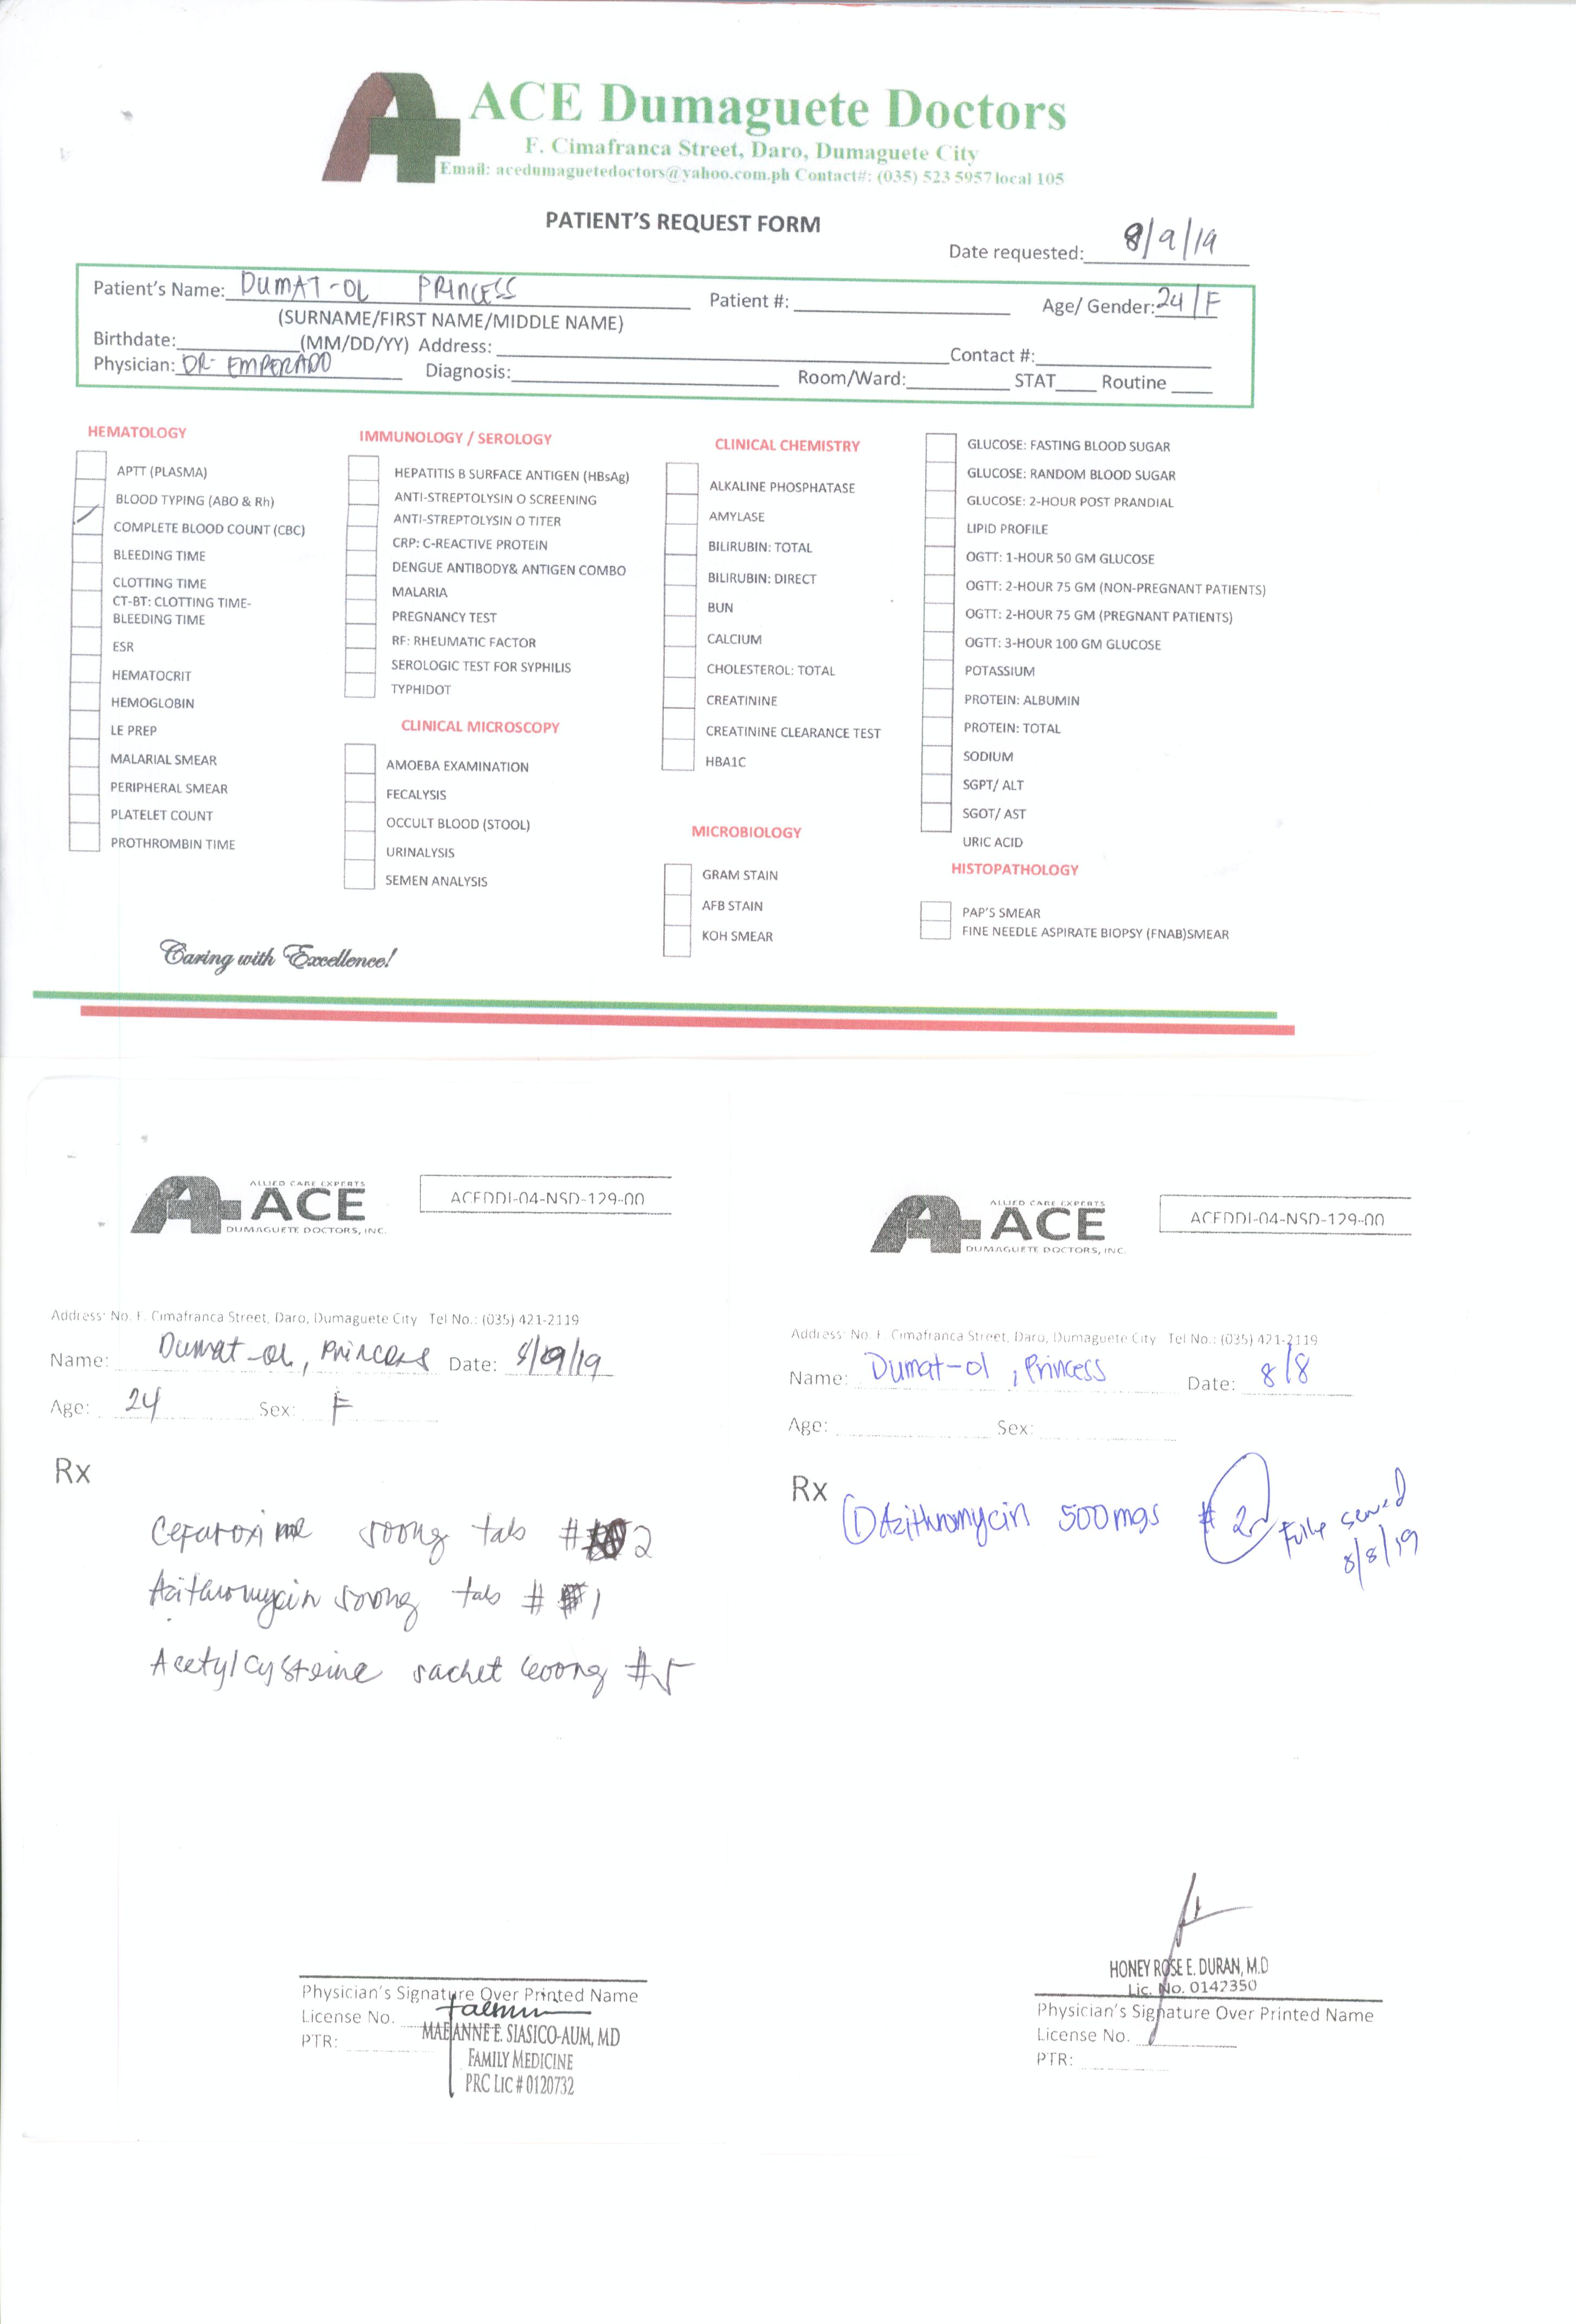 ACE Dumaguete Doctors
F. Cimafranca Street, Daro, Dumaguete City
Email: acedumaguetedoctors@yahoo.com.ph Contact#: (035) 523 5957 local 105
PATIENT'S REQUEST FORM
Date requested: 8/9/19
Patient's Name: DUMAT-OL PRINCESS Patient #: Age/ Gender: 24/F
(SURNAME/FIRST NAME/MIDDLE NAME)
Birthdate: (MM/DD/YY) Address: Contact #:
Physician: DR. EMPERADO Diagnosis: Room/Ward: STAT Routine
HEMATOLOGY
APTT (PLASMA)
BLOOD TYPING (ABO & Rh)
COMPLETE BLOOD COUNT (CBC)
BLEEDING TIME
CLOTTING TIME
CT-BT: CLOTTING TIME-
BLEEDING TIME
ESR
HEMATOCRIT
HEMOGLOBIN
LE PREP
MALARIAL SMEAR
PERIPHERAL SMEAR
PLATELET COUNT
PROTHROMBIN TIME
IMMUNOLOGY / SEROLOGY
HEPATITIS B SURFACE ANTIGEN (HBsAg)
ANTI-STREPTOLYSIN O SCREENING
ANTI-STREPTOLYSIN O TITER
CRP: C-REACTIVE PROTEIN
DENGUE ANTIBODY& ANTIGEN COMBO
MALARIA
PREGNANCY TEST
RF: RHEUMATIC FACTOR
SEROLOGIC TEST FOR SYPHILIS
TYPHIDOT
CLINICAL MICROSCOPY
AMOEBA EXAMINATION
FECALYSIS
OCCULT BLOOD (STOOL)
URINALYSIS
SEMEN ANALYSIS
CLINICAL CHEMISTRY
ALKALINE PHOSPHATASE
AMYLASE
BILIRUBIN: TOTAL
BILIRUBIN: DIRECT
BUN
CALCIUM
CHOLESTEROL: TOTAL
CREATININE
CREATININE CLEARANCE TEST
HBA1C
MICROBIOLOGY
GRAM STAIN
AFB STAIN
KOH SMEAR
GLUCOSE: FASTING BLOOD SUGAR
GLUCOSE: RANDOM BLOOD SUGAR
GLUCOSE: 2-HOUR POST PRANDIAL
LIPID PROFILE
OGTT: 1-HOUR 50 GM GLUCOSE
OGTT: 2-HOUR 75 GM (NON-PREGNANT PATIENTS)
OGTT: 2-HOUR 75 GM (PREGNANT PATIENTS)
OGTT: 3-HOUR 100 GM GLUCOSE
POTASSIUM
PROTEIN: ALBUMIN
PROTEIN: TOTAL
SODIUM
SGPT/ ALT
SGOT/ AST
URIC ACID
HISTOPATHOLOGY
PAP'S SMEAR
FINE NEEDLE ASPIRATE BIOPSY (FNAB)SMEAR
Caring with Excellence!
ALLIED CARE EXPERTS
ACE
DUMAGUETE DOCTORS, INC.
ACEDDI-04-NSD-129-00
Address: No. F. Cimafranca Street, Daro, Dumaguete City Tel No.: (035) 421-2119
Name: Dumat-ol, Princess Date: 8/09/19
Age: 24 Sex: F
Rx
Cefuroxime 500mg tab # 2
Azithromycin 500mg tab # 1
Acetylcysteine sachet 600mg #5
Physician's Signature Over Printed Name
License No.
MAE ANNE E. SIASICO-AUM, MD
PTR:
FAMILY MEDICINE
PRC LIC # 0120732
ALLIED CARE EXPERTS
ACE
DUMAGUETE DOCTORS, INC.
ACEDDI-04-NSD-129-00
Address: No. F. Cimafranca Street, Daro, Dumaguete City Tel No.: (035) 421-2119
Name: Dumat-ol, Princess Date: 8/8
Age: Sex:
Rx
① Azithromycin 500mgs # 2 Fully served
8/8/19
HONEY ROSE E. DURAN, M.D
Lic. No. 0142350
Physician's Signature Over Printed Name
License No.
PTR: